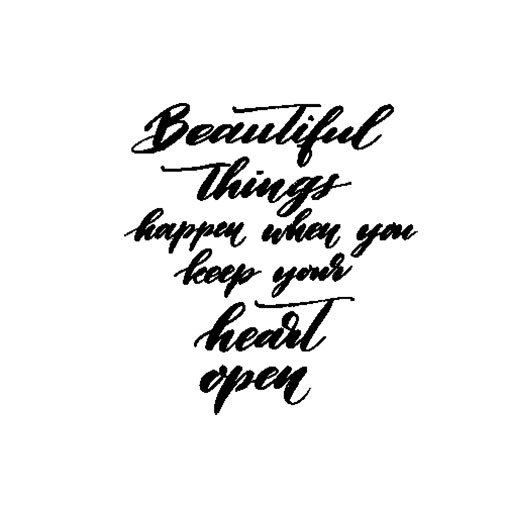 Beautiful
things
happen when you
keep your
heart
open